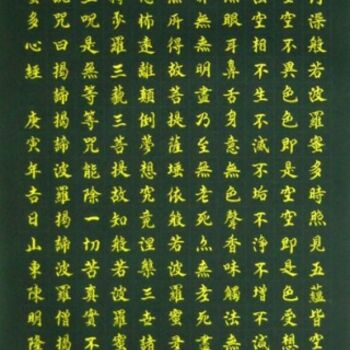 行深般若波羅蜜多時照見五蘊皆空
空空不異色色即是空空即是色受想
法空相不生不滅不垢不淨不增不減
無眼耳鼻舌身意無色聲香味觸法無
界無無明盡乃至無老死亦無老死盡
無所得故菩提薩埵依般若波羅蜜多
恐怖遠離顛倒夢想究竟涅槃三世諸
耨多羅三藐三菩提故知般若波羅蜜
上呪是無等等呪能除一切苦真實不
說呪曰揭諦揭諦波羅揭諦波羅僧揭
蜜多心經 庚寅年吉日山東陳明隆